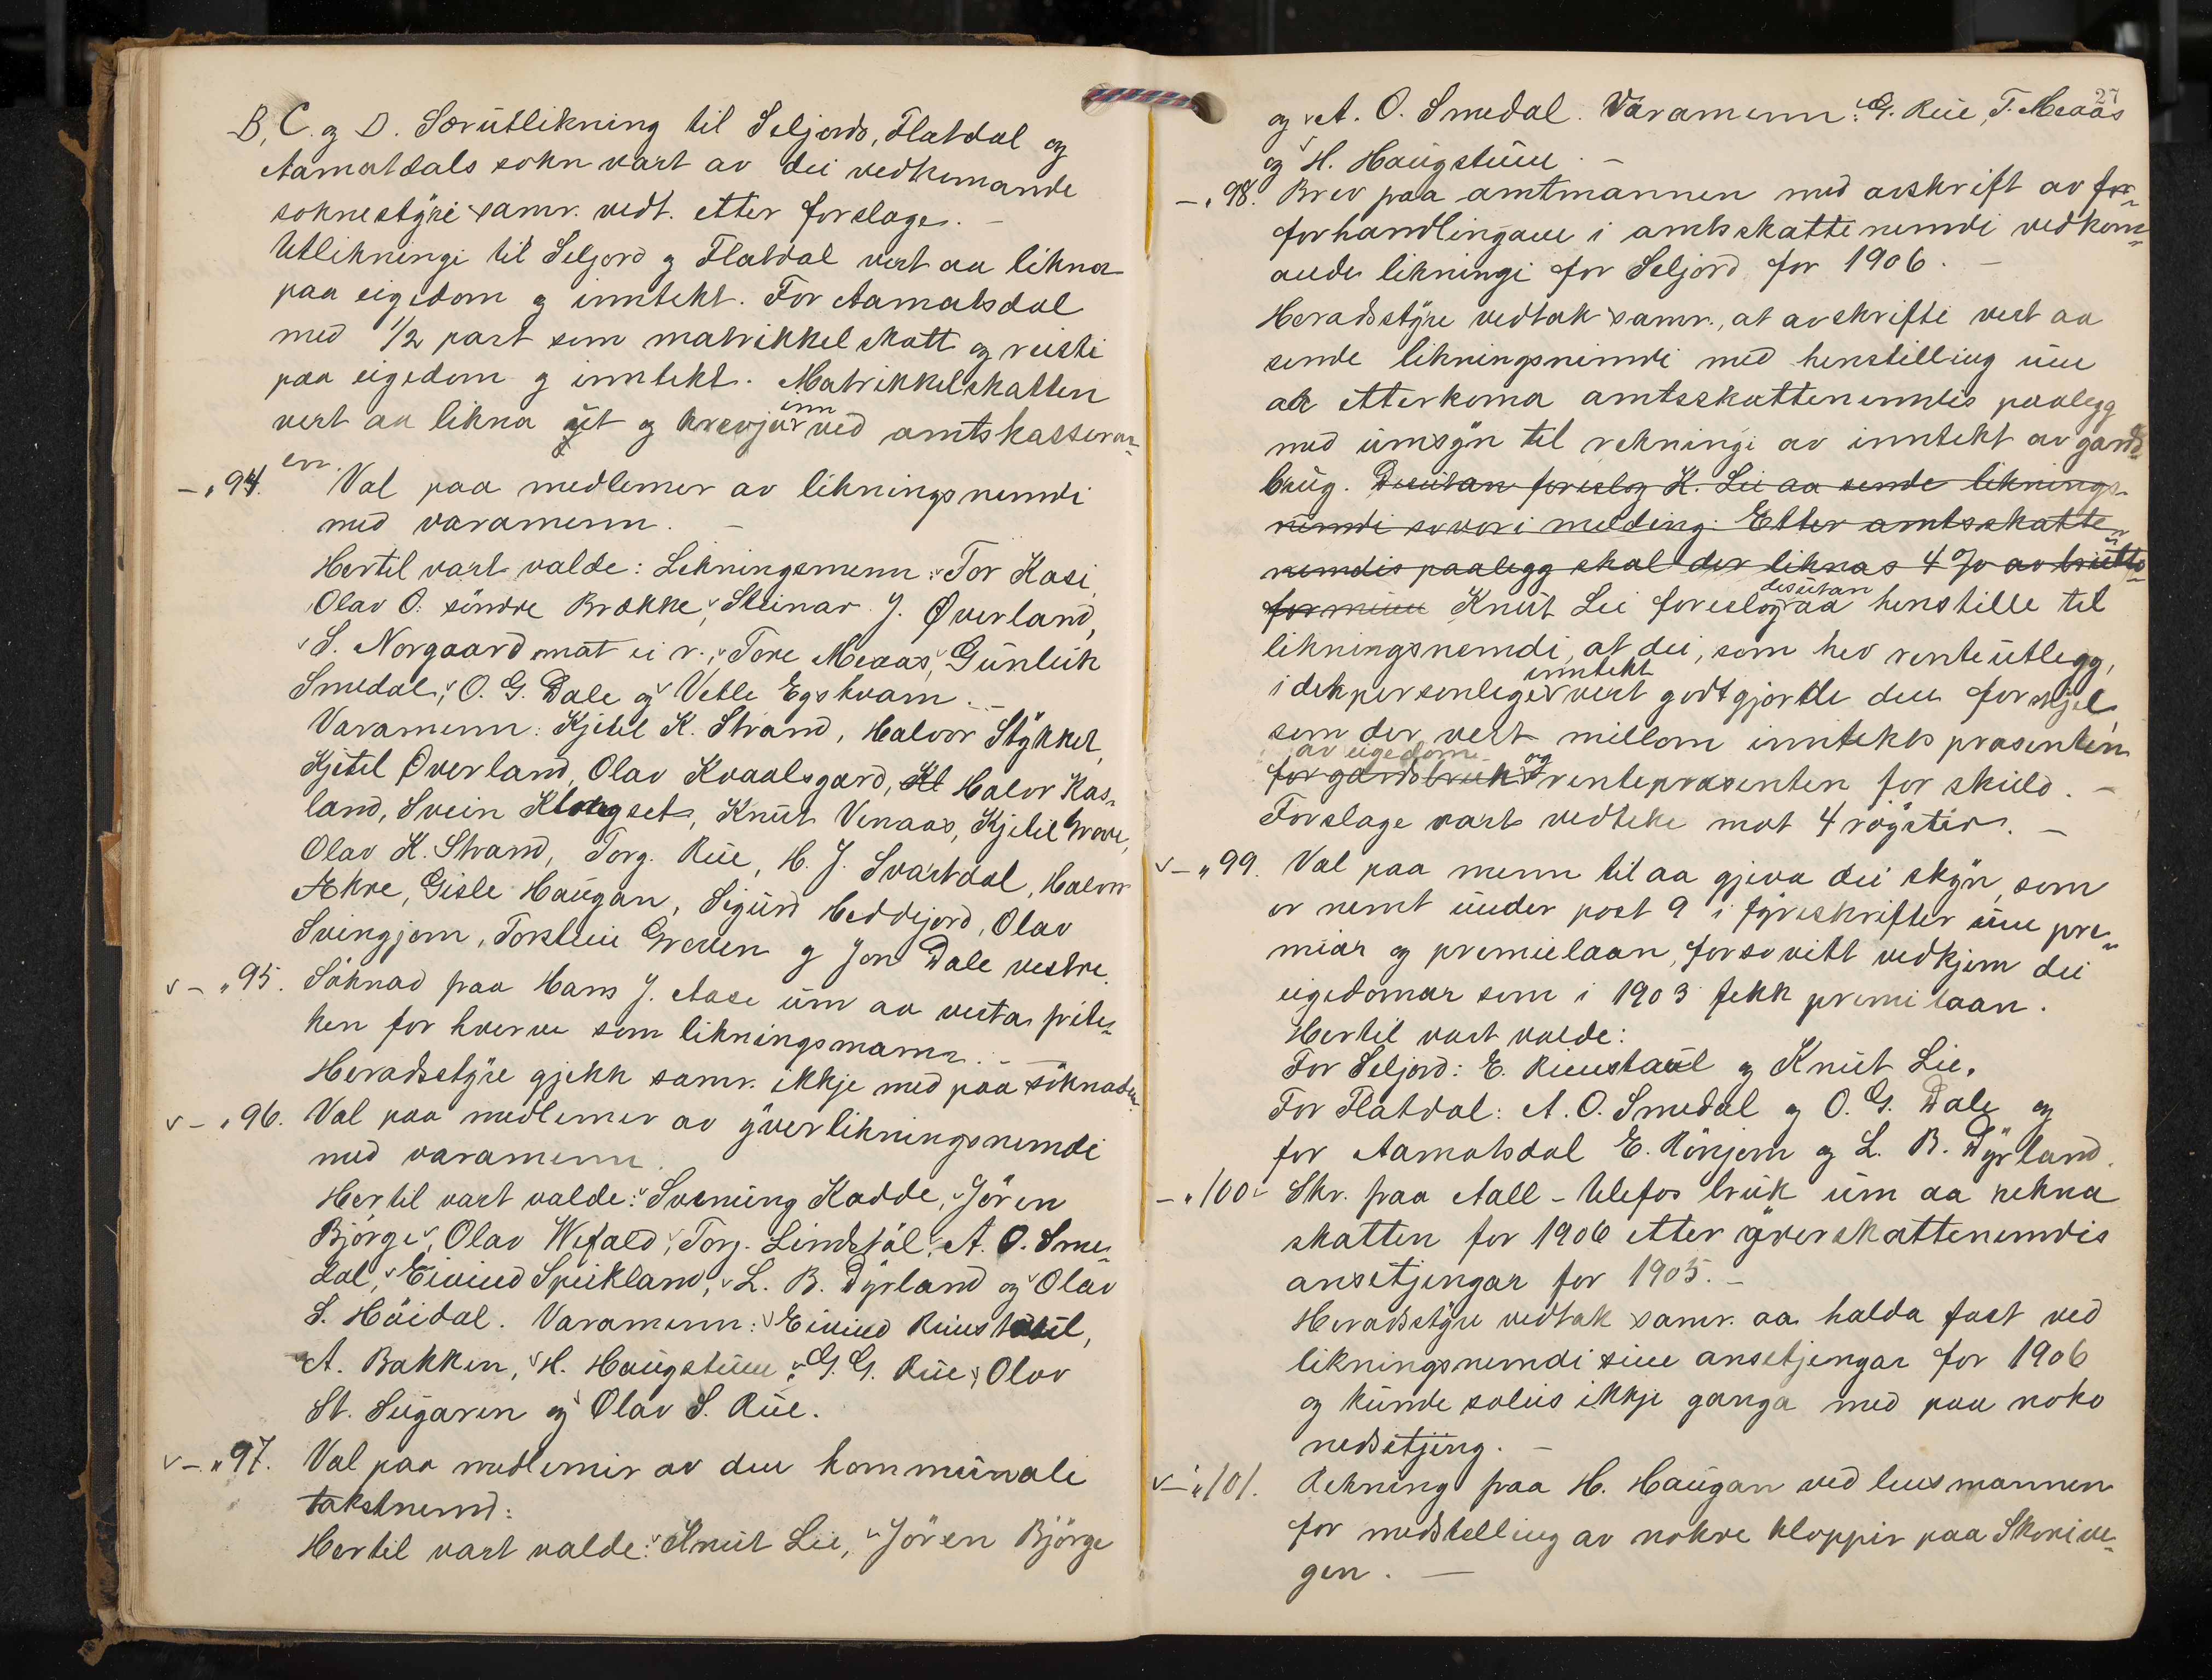 B, C. og D. Særutlikning til Seljords, Flatdal og
Aamatdals sokn vart av dei vedkomande
soknestyri samr. vedt. etter forslage. —
Utlikningi til Seljord og Flatdal vert aa likna
paa eigedom og inntekt. For Aamatsdal
med 1/2 part som matrikkelskatt og reisti
paa eigedom og inntekt. Matrikkelskatten
vert aa likna ut og krevja inn ved amtskasserar-
en.
— „ 94. Val paa medlemer av likningsnemdi
med varamenn. —
Hertil vart valde: Likningsmenn: Tor Kasi,
Olav O. söndre Brække, Steinar J. Øverland,
S. Norgaard mat ei r., Tore Meaas, Gunleik
Smedal, O. G. Dale og Vetle Egskvam. —
Varamenn: Kjetil K. Strand, Halvor Stykket,
Kjetil Øverland, Olav Kvaalsgard, Kl Halvor Kas-
land, Svein Klongset, Knut Venaas, Kjetil Brove,
Olav K. Strand, Torg. Rue, H. J. Svartdal, Halvor
Akre, Gisle Haugan, Sigurd Heddejord, Olav
Svingjom, Torstein Greven og Jon Dale vestre.
v — „ 95. Söknad fraa Hans J. Aase um aa verta frite-
ken for hverve som likningsmann. —
Heradsstyre gjekk samr. ikkje med paa söknaden.
v — „ 96. Val paa medlemer av yverlikningsnemdi
med varamenn.
Hertil vart valde: Svenung Kadde, Jören
Björge, Olav Wefald, Torj. Lindstöl, A. O. Sme-
dal, Eivind Speikland, L. B. Dyrland og Olav
S. Höidal. Varamenn: Eivind Rinstaul,
A. Bakken, H. Haugstuen, G. G. Rue, Olav
St. Sugaren og Olav S. Rue.
v — „ 97. Val paa medlemir av den kommunale
takstnemd:
Hertil vart valde: Knut Lie, Jören Björge
27
og A. O. Smedal. Varamenn: G. Rue, T. Meaas
og H. Haugstuen. —
— „ 98. Brev fraa amtmannen med avskrift av for-
forhandlingane i amtsskattenemdi vedkom-
ande likningi for Seljord for 1906. —
Heradsstyre vedtak samr., at avskrifti vert aa
sende likningsnemdi med henstilling um
at etterkoma amtsskattenemdis paalegg
med umsyn til rekningi av inntekt av gards-
bruk. Desutan foreslog K. Lie aa sende liknings-
nemdi sovori melding: Etter amtsskatte-
nemdis paalegg skal der liknas 4 % av brutto-
formuen Knut Lie foreslog desutan aa henstille til
likningsnemdi, at dei, som hev renteutlegg,
i dek personlege inntekt vert godtgjortde den forskjel,
som der vert millom inntekts prosenten
av eigedom og
for gardsbruk renteprosenten for skuld. —
Forslage vart vedteke mot 4 røyster. —
v — „ 99. Val paa menn til aa gjeva dei skyn, som
er nemt under post 9 i fyreskrifter um pre-
miar og premielaan, forsovitt vedkjem dei
eigedomar som i 1903 fekk premilaan.
Hertil vart valde:
For Seljord: E. Rinstaul og Knut Lie.
For Flatdal: A. O. Smedal og O. G. Dale og
for Aamotsdal E. Rönjom og L. B. Dyrland.
— „ 100. Skr. fraa Aall-Ulefos bruk um aa rekna
skatten for 1906 etter yverskattenemdis
ansetjingar for 1905. —
Heradsstyre vedtak samr. aa halda fast ved
likningsnemdi sine ansetjingar for 1906
og kunde soleis ikkje ganga med paa noko
nedsetjing. —
v — „ 101. Rekning fraa H. Haugan ved lensmannen
for nedstelling av nokre kloppir paa Skorive-
gen. —